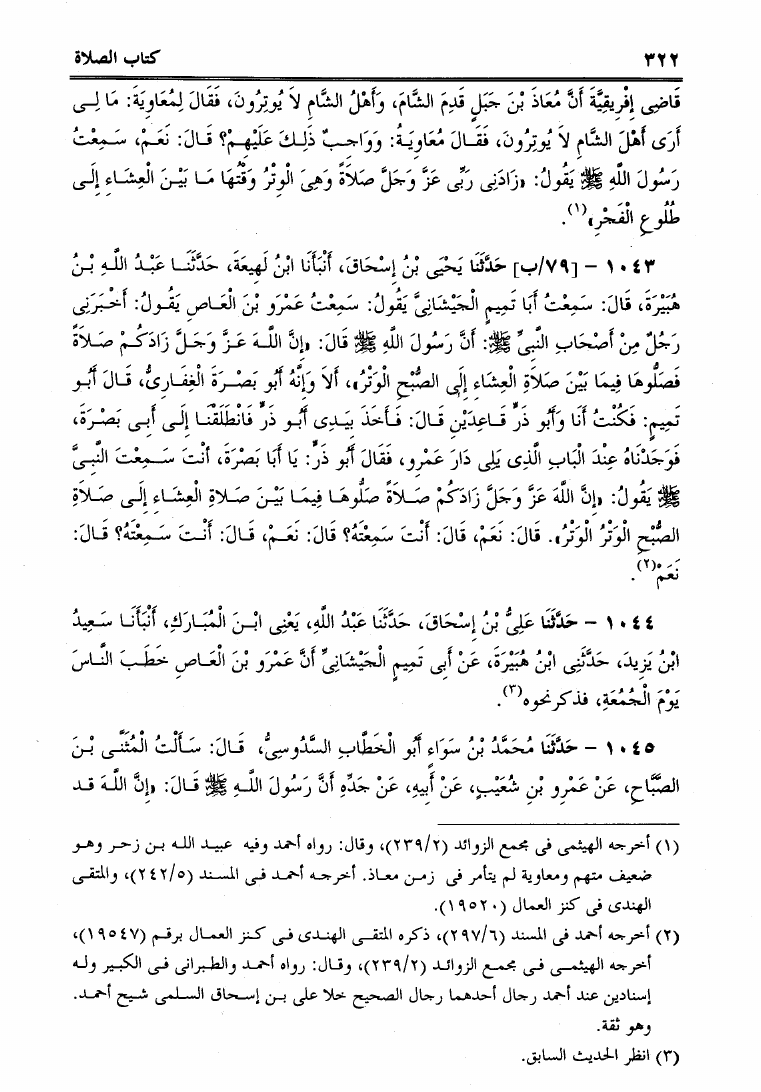 ٣٢٢ كتاب الصلاة
قَاضِى إِفْرِيقِيَّةَ أَنَّ مُعَاذَ بْنَ جَبَلٍ قَدِمَ الشَّامَ، وَأَهْلُ الشَّامِ لاَ يُوتِرُونَ، فَقَالَ لِمُعَاوِيَةَ: مَا لِـى
أَرَى أَهْلَ الشَّامِ لاَ يُوتِرُونَ، فَقَـالَ مُعَاوِيَـةُ: وَوَاجـبٌ ذَلِـكَ عَلَيْهِـمْ؟ قَـالَ: نَعَـمْ، سَـمِعْتُ
رَسُولَ اللَّهِ ﷺ يَقُولُ: «زَادَنِى رَبِّى عَزَّ وَجَلَّ صَلاَةً وَهِىَ الْوِتْرُ وَقْتُهَا مَـا بَيْـنَ الْعِشَـاءِ إِلَـى
طُلُوعِ الْفَجْرِ»(١).
١٠٤٣ - [٧٩/ب] حَدَّثَنَا يَحْيَى بْنُ إِسْحَاقَ، أَنْبَأَنَا ابْنُ لَهِيعَةَ، حَدَّثَنَـا عَبْـدُ اللَّـهِ بْـنُ
هُبَيْرَةَ، قَالَ: سَمِعْتُ أَبَا تَمِيمٍ الْجَيْشَانِىَّ يَقُولُ: سَمِعْتُ عَمْرَو بْنَ الْعَـاصِ يَقُـولُ: أَخْبَرَنِى
رَجُلٌ مِنْ أَصْحَابِ النَّبِىِّ ﷺ: أَنَّ رَسُولَ اللَّهِ ﷺ قَالَ: «إِنَّ اللَّـهَ عَـزَّ وَجَـلَّ زَادَكُـمْ صَـلاَةً
فَصَلُّوهَا فِيمَا بَيْنَ صَلاَةِ الْعِشَاءِ إِلَى الصُّبْحِ الْوَتْرُ»، أَلاَ وَإِنَّهُ أَبُو بَصْـرَةَ الْغِفَـارِىُّ، قَـالَ أَبُو
تَمِيمٍ: فَكُنْتُ أَنَا وَأَبُو ذَرٍّ قَـاعِدَيْنِ قَـالَ: فَـأَخَذَ بِيَـدِى أَبُـو ذَرٍّ فَانْطَلَقْنَـا إِلَـى أَبِـى بَصْـرَةَ،
فَوَجَدْنَاهُ عِنْدَ الْبَابِ الَّذِى يَلِى دَارَ عَمْرٍو، فَقَالَ أَبُو ذَرٍّ: يَا أَبَا بَصْرَةَ، أَنْتَ سَـمِعْتَ النَّبِـىَّ
ﷺ يَقُولُ: «إِنَّ اللَّهَ عَزَّ وَجَلَّ زَادَكُمْ صَـلاَةً صَلُّوهَـا فِيمَـا بَيْـنَ صَـلاَةِ الْعِشَـاءِ إِلَـى صَـلاَةِ
الصُّبْحِ الْوَتْرُ الْوَتْرُ». قَالَ: نَعَمْ، قَالَ: أَنْتَ سَمِعْتَهُ؟ قَالَ: نَعَـمْ، قَـالَ: أَنْـتَ سَـمِعْتَهُ؟ قَـالَ:
نَعَمْ(٢).
١٠٤٤ - حَدَّثَنَا عَلِىُّ بْنُ إِسْحَاقَ، حَدَّثَنَا عَبْدُ اللَّهِ، يَعْنِى ابْـنَ الْمُبَـارَكِ، أَنْبَأَنَـا سَـعِيدُ
ابْنُ يَزِيدَ، حَدَّثَنِى ابْنُ هُبَيْرَةَ، عَنْ أَبِى تَمِيمٍ الْجَيْشَانِىِّ أَنَّ عَمْرَو بْنَ الْعَـاصِ خَطَـبَ النَّـاسَ
يَوْمَ الْجُمُعَةِ، فذكر نحوه(٣).
١٠٤٥ - حَدَّثَنَا مُحَمَّدُ بْنُ سَوَاءٍ أَبُو الْخَطَّابِ السَّدُوسِىُّ، قَـالَ: سَـأَلْتُ الْمُثَنَّـى بْـنَ
الصَّبَّاحِ، عَنْ عَمْرِو بْنِ شُعَيْبٍ، عَنْ أَبِيهِ، عَنْ جَدِّهِ أَنَّ رَسُولَ اللَّـهِ ﷺ قَـالَ: «إِنَّ اللَّـهَ قـد
(١) أخرجه الهيثمى فى مجمع الزوائد (٢٣٩/٢)، وقال: رواه أحمد وفيه عبيـد اللـه بـن زحـر وهـو
ضعيف متهم ومعاوية لم يتأمر فى زمـن معـاذ. أخرجـه أحمـد فـى المسـند (٢٤٢/٥)، والمتقـى
الهندى فى كنز العمال (١٩٥٢٠).
(٢) أخرجه أحمد فى المسند (٢٩٧/٦)، ذكره المتقـى الهنـدى فـى كـنز العمـال برقـم (١٩٥٤٧)،
أخرجه الهيثمـى فـى مجمـع الزوائـد (٢٣٩/٢)، وقـال: رواه أحمـد والطـبرانى فـى الكبـير ولـه
إسنادين عند أحمد رجال أحدهما رجال الصحيح خلا على بـن إسـحاق السـلمى شـيخ أحمـد.
وهو ثقة.
(٣) انظر الحديث السابق.